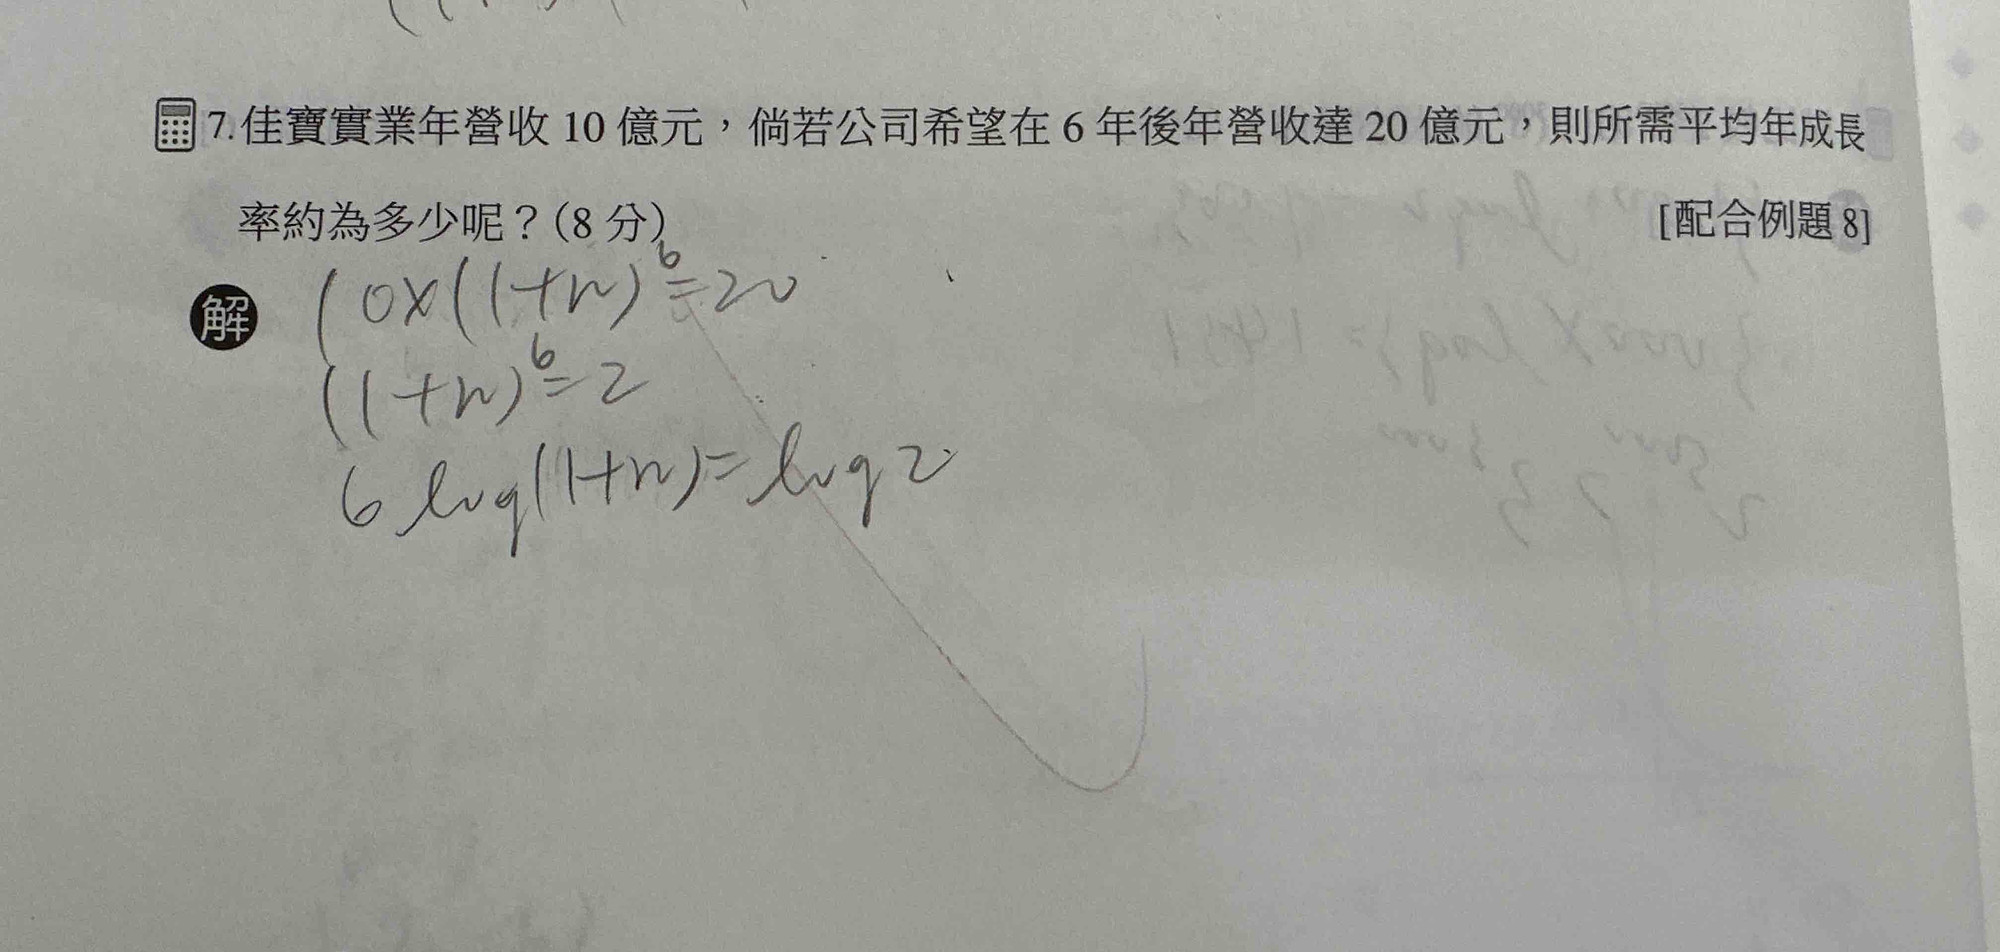 7.佳寶實業年營收 10 億元，倘若公司希望在 6 年後年營收達 20 億元，則所需平均年成長
率約為多少呢？(8 分)
[配合例題 8]
解
10×(1+n)⁶=20
(1+n)⁶=2
6 log(1+n)=log 2